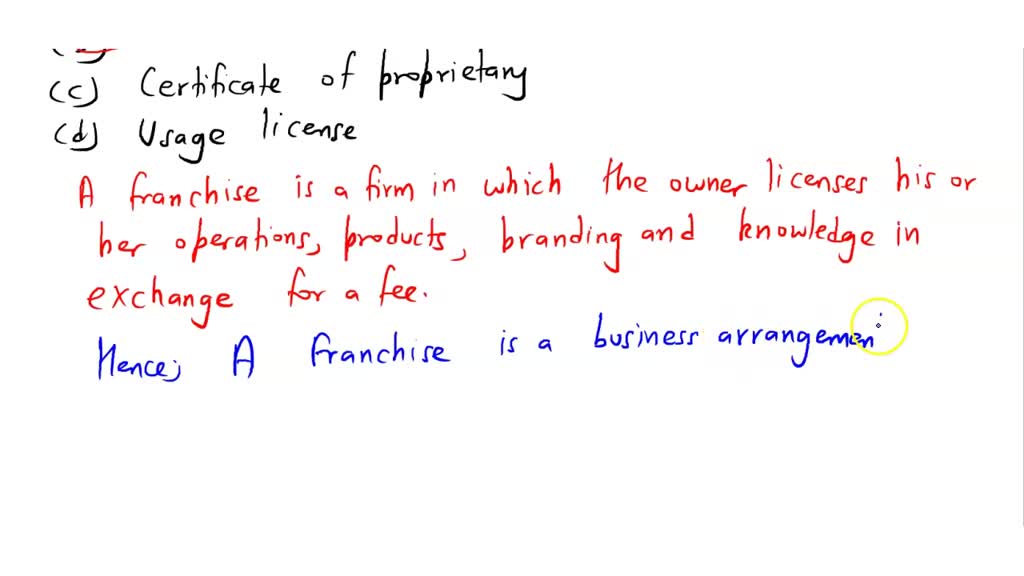 (c) Certificate of proprietary
(d) Usage license
A franchise is a firm in which the owner licenses his or
her operations, products, branding and knowledge in
exchange for a fee.
Hence; A franchise is a business arrangemen